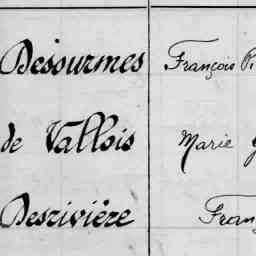 Desourmes François Pi
de Vallois Marie
Desrivière Franç